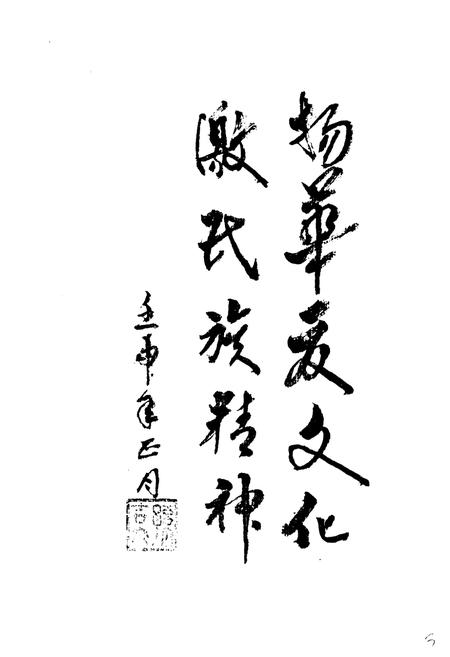 扬華夏文化
激民族精神
壬申年正月
5